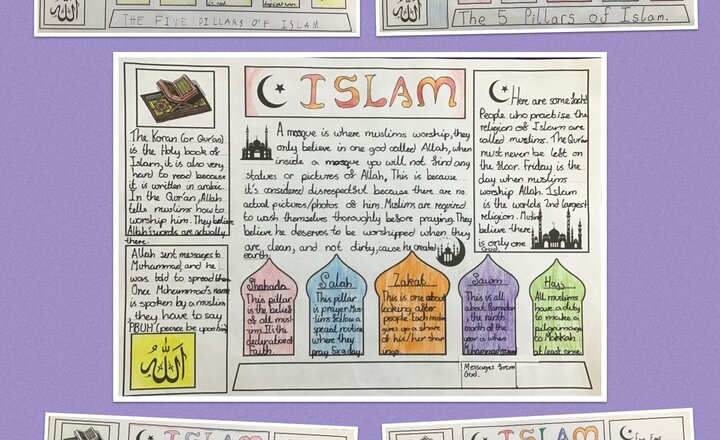 THE FIVE PILLARS OF ISLAM
The 5 Pillars of Islam.
ISLAM
The Koran (or Qur'an)
is the Holy book of
Islam, it is also very
hard to read because
it is written in arabic.
In the Qur'an, Allah
tells muslims how to
worship him. They believe
Allah's words are actually
there.
Allah sent messages to
Muhammad, and he
was told to spread them
Once Muhammad's name
is spoken by a muslim
, they have to say
PBUH (peace be upon him)
الله
A mosque is where muslims worship, they
only believe in one god called Allah, when
inside a mosque you will not find any
statues or pictures of Allah, This is because
it's considered disrespectful because there are no
actual pictures/photos of him. Muslims are required
to wash themselves thoroughly before praying. They
believe he deserves to be worshipped when they
are clean, and not dirty, cause he created
earth.
Here are some facts!
People who practise the
religion of Islam are
called muslims. The Qur'an
must never be left on
the floor. Friday is the
day when muslims
worship Allah. Islam
is the worlds 2nd largest
religion.
believe there
is only one
God.
Shahada
This pillar
is the belief
of all musl-
ims. It's the
decleration of
faith.
Salah
This pillar
is prayer. Mus-
lims follow a
special routine
where they
pray 5x a day.
Zakat
This is one about
looking after
people. Each muslim
gives up a share
of his/her
Sawm
This is all
about Ramadan
, the ninth
month of the
year is when
Muhammad
Messages from
God.
Hajj
All muslims
have a duty
to make a
pilgrimage
to Makkah
at least once
ISLAM
ISLAM